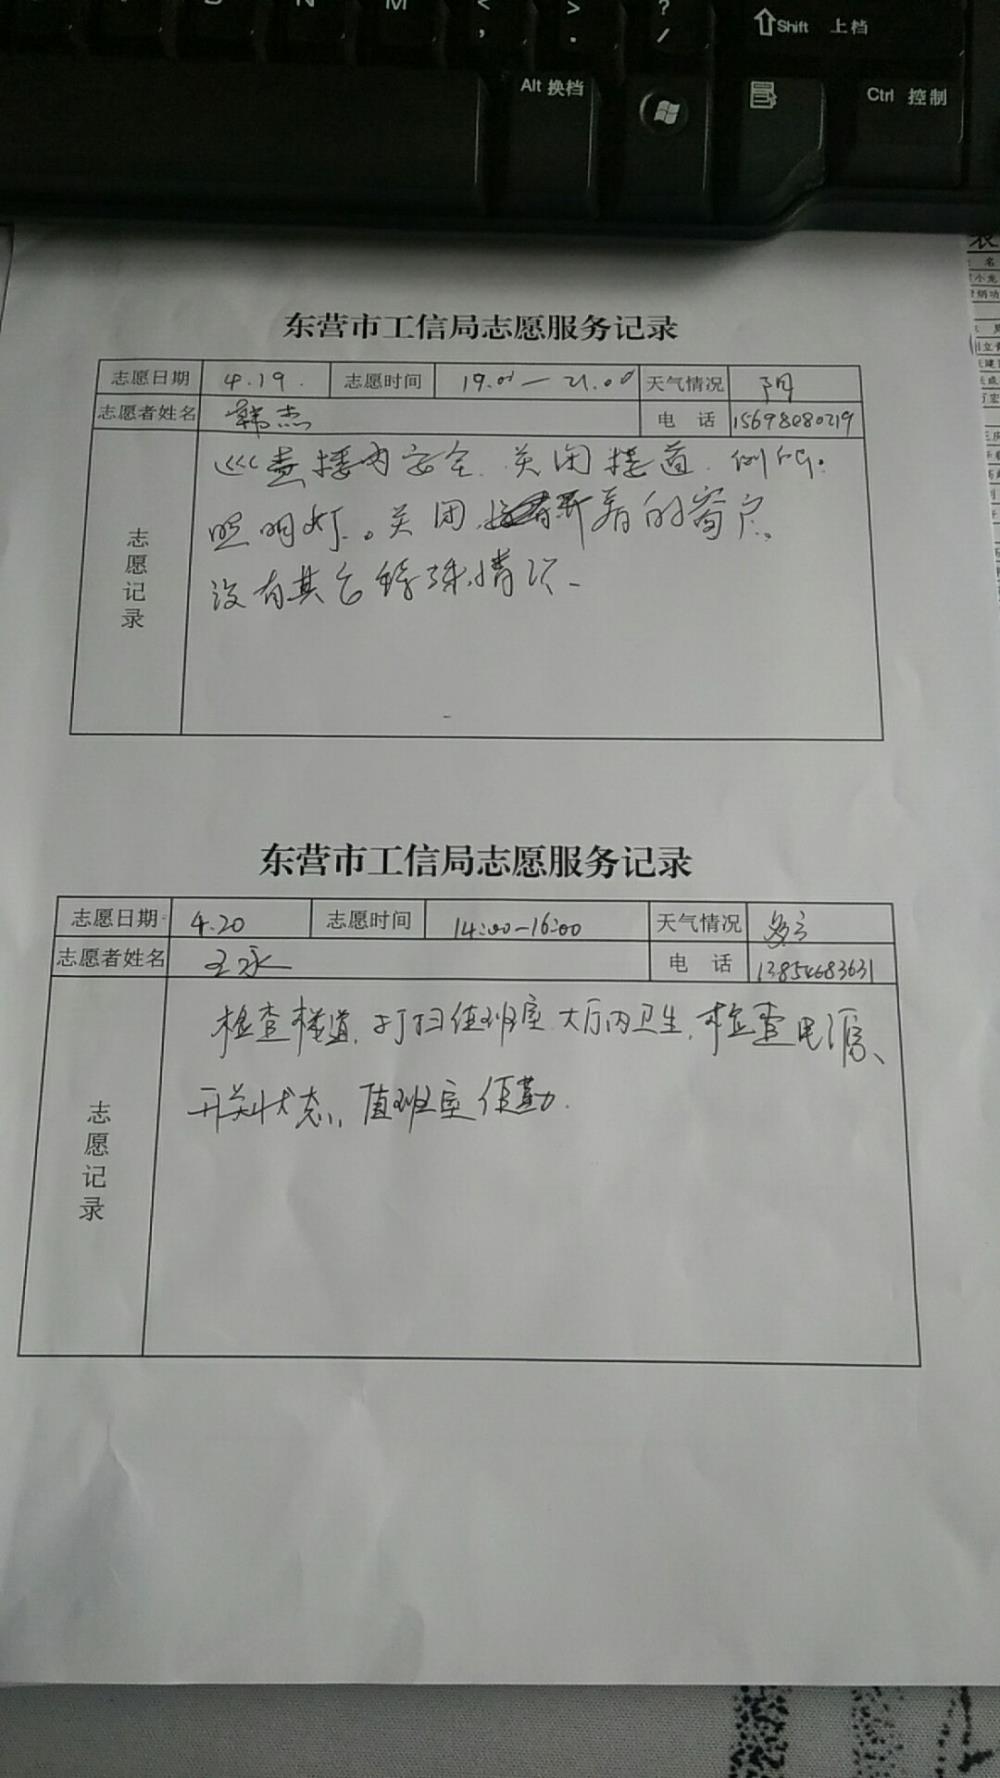 N M < , > . ? /
Shift 上档
Alt 换档
Ctrl 控制
东营市工信局志愿服务记录
志愿日期 4.19. 志愿时间 19.00—21.00 天气情况 阴
志愿者姓名 韩杰 电 话 15698080219
志愿记录
巡查楼内安全.关闭楼道.
照明灯.。关闭 开着的窗户.
没有其它特殊情况.
东营市工信局志愿服务记录
志愿日期 4.20 志愿时间 14:00-16:00 天气情况 多云
志愿者姓名 王永 电 话 13854683631
志愿记录
检查楼道,打扫值班室.大厅内卫生,检查电源、
开关状态,值班室值勤.